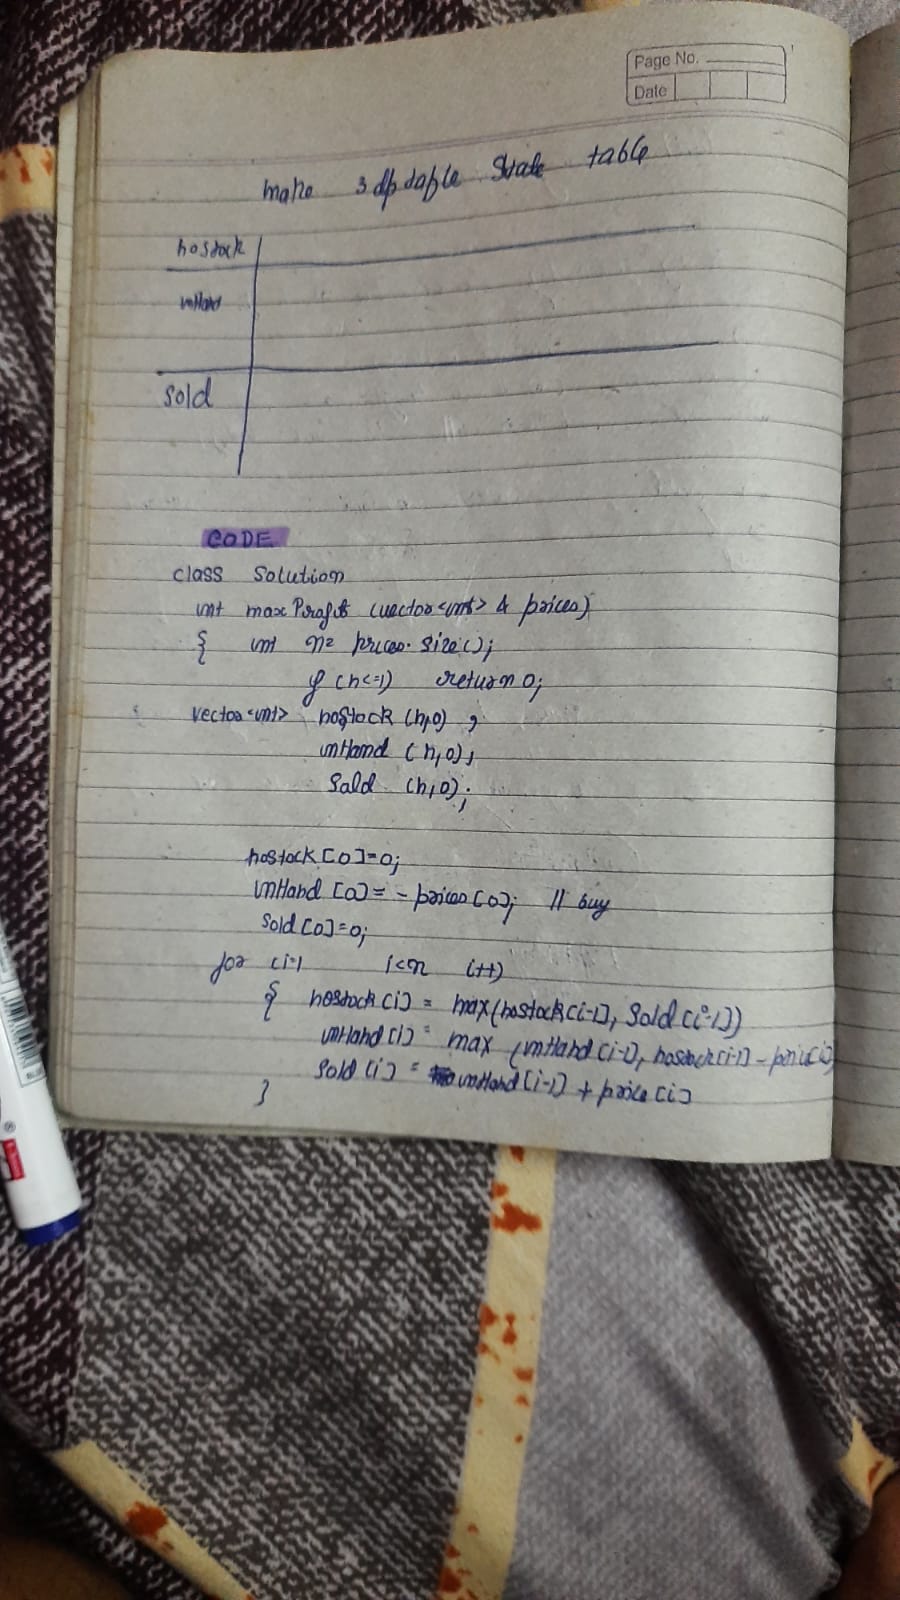 Page No.
Date
make 3 dp table State table
nostock
inHand
Sold
CODE
class Solution
int maxProfit (vector<int> & prices)
{ int n= prices.size();
if (n<=1) return 0;
vector<int> noStock (n,0) ,
inHand (n,0),
Sold (n,0);
nostock[0]=0;
inHand [0]= - prices[0]; // buy
Sold[0]=0;
for (i=1 i<n i++)
{ nostock[i] = max(nostock[i-1], Sold[i-1])
inHand[i] = max (inHand[i-1], nostock[i-1] - price[i]
Sold [i] = inHand[i-1] + price[i]
}